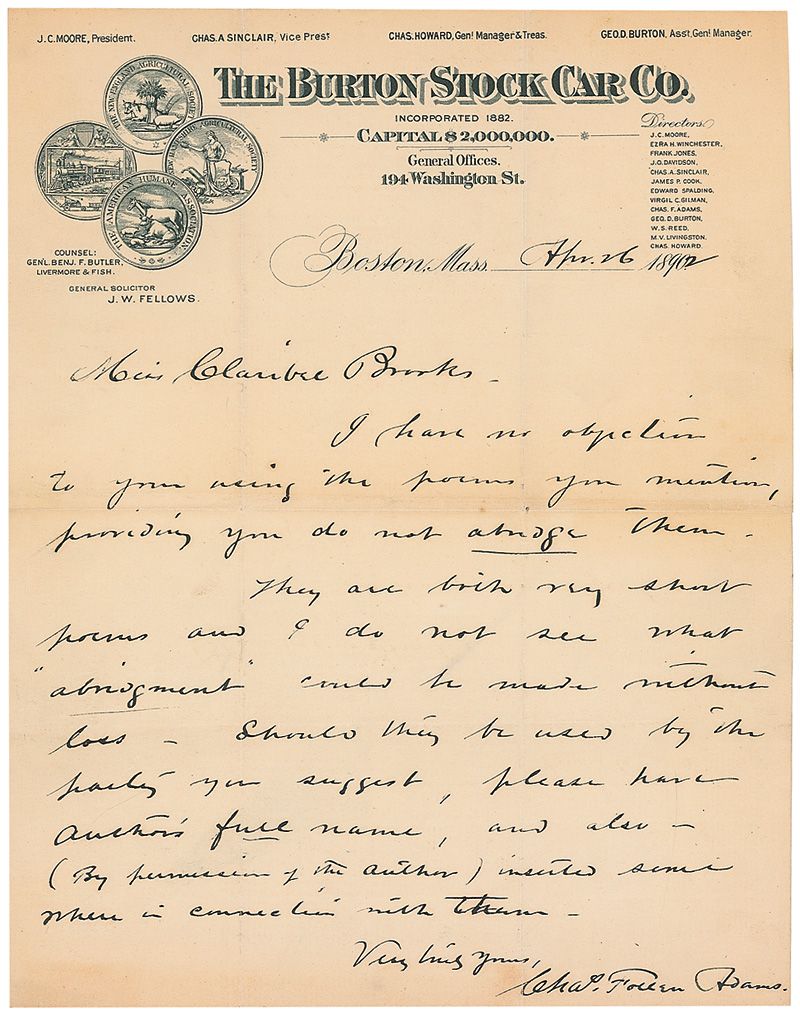 J.C. MOORE, President. CHAS. A SINCLAIR, Vice Prest CHAS. HOWARD, Genl Manager & Treas. GEO. D. BURTON, Asst. Genl Manager.
THE BURTON STOCK CAR CO.
INCORPORATED 1882.
CAPITAL $2,000,000.
General Offices.
194 Washington St.
Directors
J.C. MOORE,
EZRA H. WINCHESTER,
FRANK JONES,
J.O. DAVIDSON,
CHAS. A. SINCLAIR,
JAMES P. COOK,
EDWARD SPALDING,
VIRGIL C. GILMAN,
CHAS. F. ADAMS,
GEO. D. BURTON,
W. S. REED,
M.V. LIVINGSTON.
CHAS. HOWARD.
THE NEW ENGLAND AGRICULTURAL SOCIETY
AGRICULTURAL SOCIETY
THE AMERICAN HUMANE ASSOCIATION
COUNSEL:
GEN'L. BENJ. F. BUTLER,
LIVERMORE & FISH.
GENERAL SOLICITOR
J. W. FELLOWS.
Boston, Mass. Apr. 26 1892
Miss Claribel Brooks -
I have no objection
to your using the poems you mention,
providing you do not abridge them -
They are both very short
poems and I do not see what
"abridgment" could be made without
loss - Should they be used by the
party you suggest, please have
author's full name, and also -
(By permission of the author) inserted some
where in connection with them -
Very truly yours,
Chas. Follen Adams.